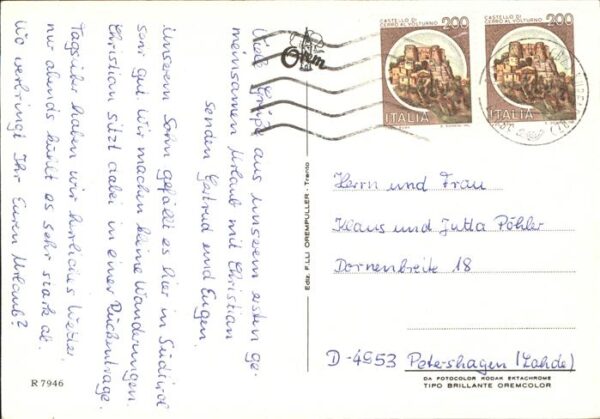 Viele Grüße aus unserem ersten ge-
meinsamen Urlaub mit Christian
senden Gertrud und Eugen.
Unserem Sohn gefällt es hier in Südtirol
sehr gut. Wir machen kleine Wanderungen.
Christian sitzt dabei in einer Rückentrage.
Tagsüber haben wir herrliches Wetter,
nur abends kühlt es sehr stark ab.
Wo verbringt Ihr Euren Urlaub?
R 7946
Orem
Ediz. F.LLI OREMPULLER - Trento
CASTELLO DI
CERRO AL VOLTURNO
200
ITALIA
CASTELLO DI
CERRO AL VOLTURNO
200
ITALIA
Herrn und Frau
Klaus und Jutta Pöhler
Dornenbreite 18
D-4953 Petershagen (Lahde)
DA FOTOCOLOR KODAK EKTACHROME
TIPO BRILLANTE OREMCOLOR